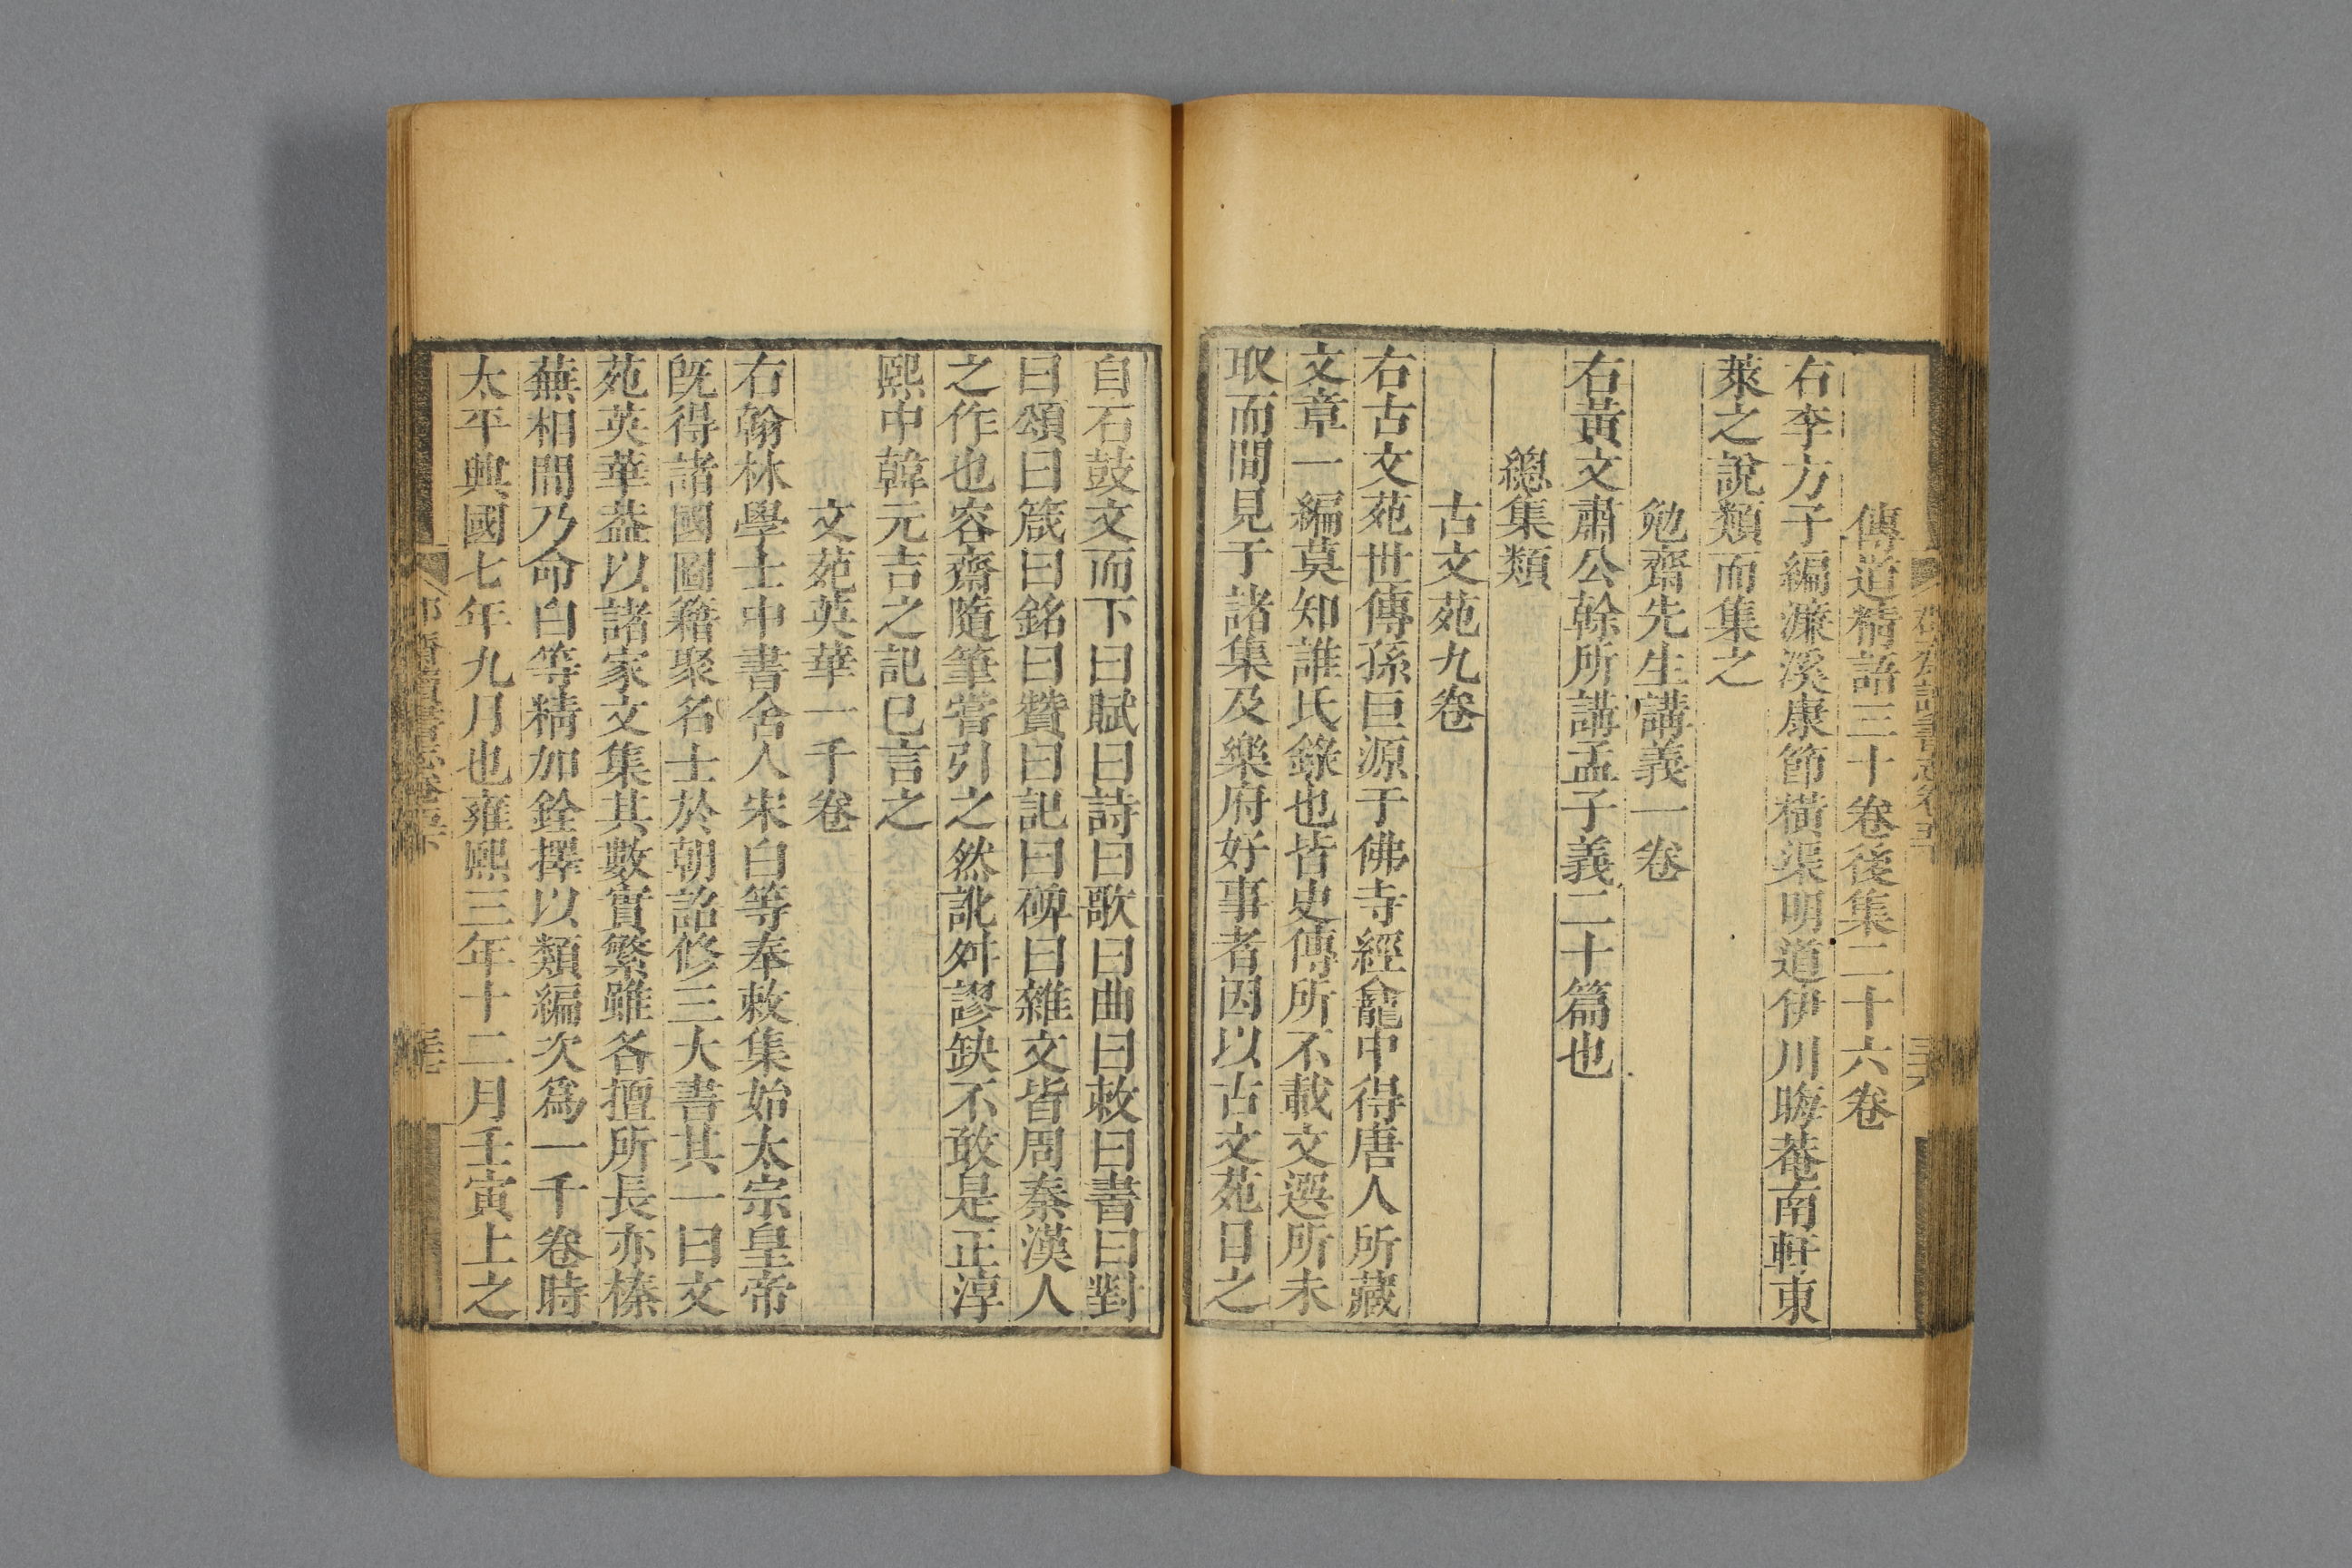 傳道精語三十卷後集二十六卷
右李方子編濂溪康節橫渠明道伊川晦菴南軒東
萊之說類而集之
勉齋先生講義一卷
右黃文肅公榦所講孟子義二十篇也
總集類
古文苑九卷
右古文苑世傳孫巨源于佛寺經龕中得唐人所藏
文章一編莫知誰氏錄也皆史傳所不載文選所未
取而間見于諸集及樂府好事者因以古文苑目之
自石鼓文而下曰賦曰詩曰歌曰曲曰敕曰書曰對
曰頌曰箴曰銘曰贊曰記曰碑曰雜文皆周秦漢人
之作也容齋隨筆嘗引之然訛舛謬缺不敢是正淳
熙中韓元吉之記已言之
文苑英華一千卷
右翰林學士中書舍人宋白等奉敕集始太宗皇帝
旣得諸國圖籍聚名士於朝詔修三大書其一曰文
苑英華葢以諸家文集其數實繁雖各擅所長亦榛
蕪相間乃命白等精加銓擇以類編次爲一千卷時
太平興國七年九月也雍熙三年十二月壬寅上之